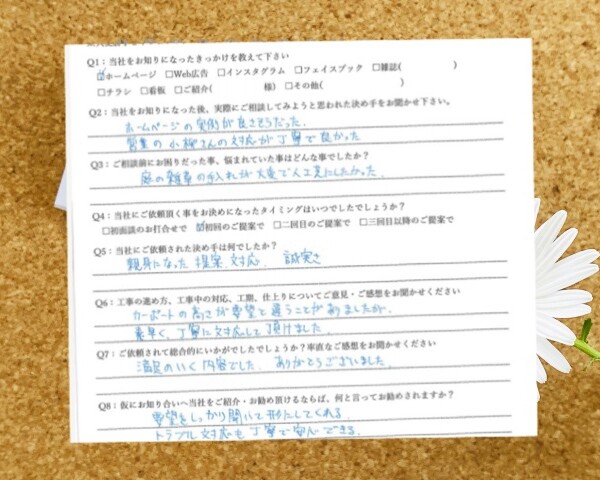 Q1：当社をお知りになったきっかけを教えて下さい
☑ホームページ □Web広告 □インスタグラム □フェイスブック □雑誌( )
□チラシ □看板 □ご紹介( 様) □その他( )
Q2：当社をお知りになった後、実際にご相談してみようと思われた決め手をお聞かせ下さい。
ホームページの実例が良さそうだった.
営業の小柳さんの対応が丁寧で良かった
Q3：ご相談前にお困りだった事、悩まれていた事はどんな事でしたか？
庭の雑草の手入れが大変で人工芝にしたかった.
Q4：当社にご依頼頂く事をお決めになったタイミングはいつでしたでしょうか？
□初面談のお打合せで ☑初回のご提案で □二回目のご提案で □三回目以降のご提案で
Q5：当社にご依頼された決め手は何でしたか？
親身になった提案、対応、 誠実さ
Q6：工事の進め方、工事中の対応、工期、仕上りについてご意見・ご感想をお聞かせください
カーポートの高さが要望と違うことがありましたが、
素早く、丁寧に対応して頂けました.
Q7：ご依頼されて総合的にいかがでしたでしょうか？率直なご感想をお聞かせください
満足のいく内容でした. ありがとうございました.
Q8：仮にお知り合いへ当社をご紹介・お勧め頂けるならば、何と言ってお勧めされますか？
要望をしっかり聞いて形にしてくれる.
トラブル対応も丁寧で安心できる.